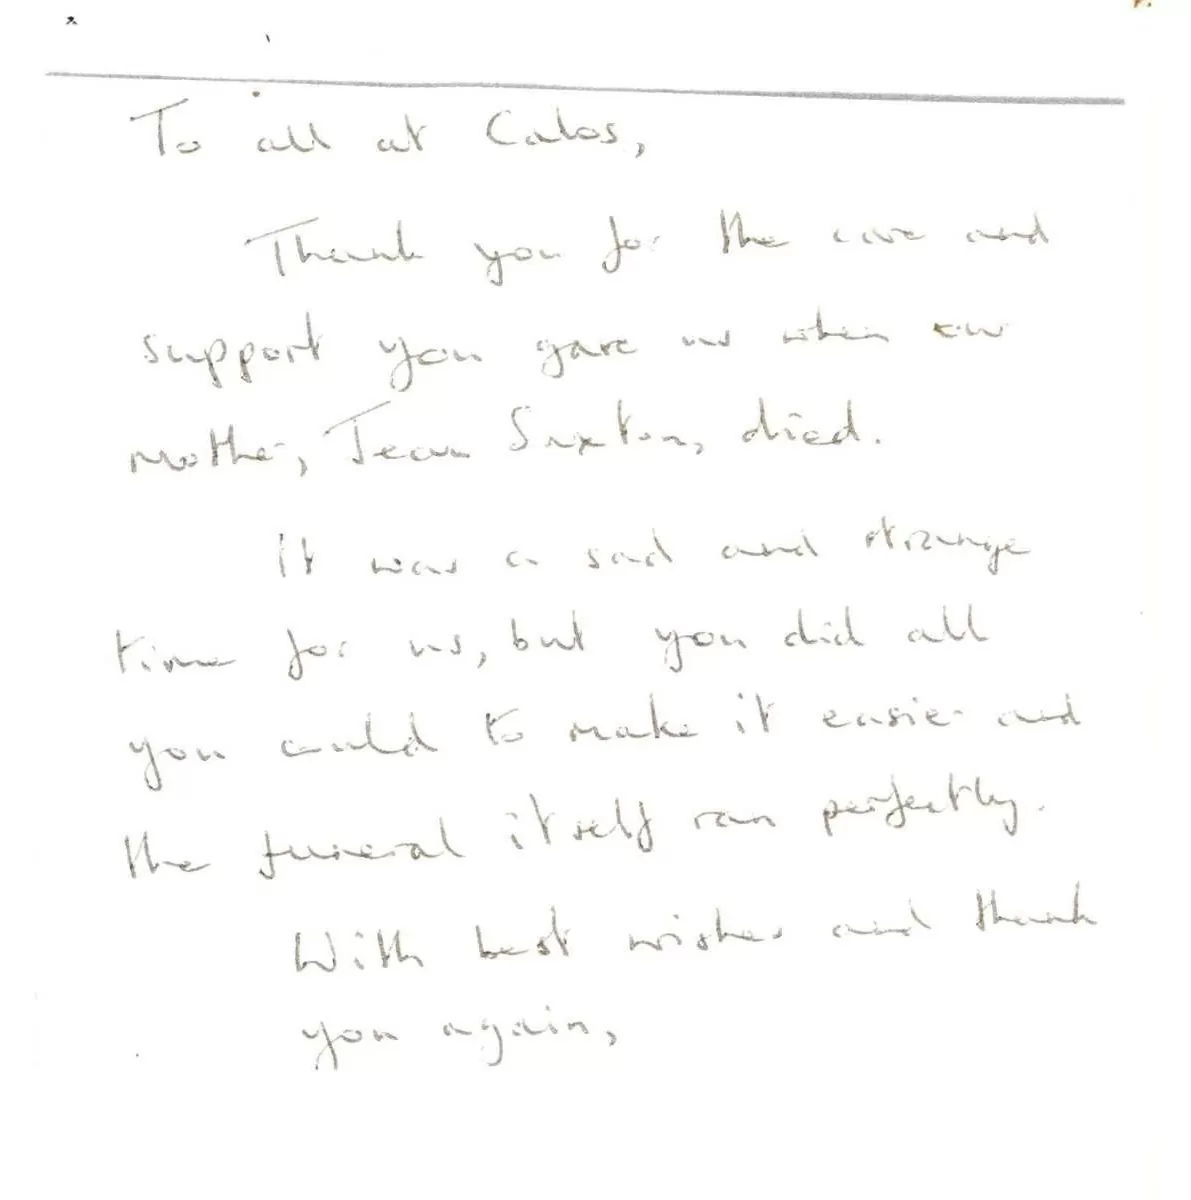 To all at Calos,
Thank you for the care and
support you gave us when our
mother, Jean Saxton, died.
It was a sad and strange
time for us, but you did all
you could to make it easier and
the funeral itself ran perfectly.
With best wishes and thank
you again,